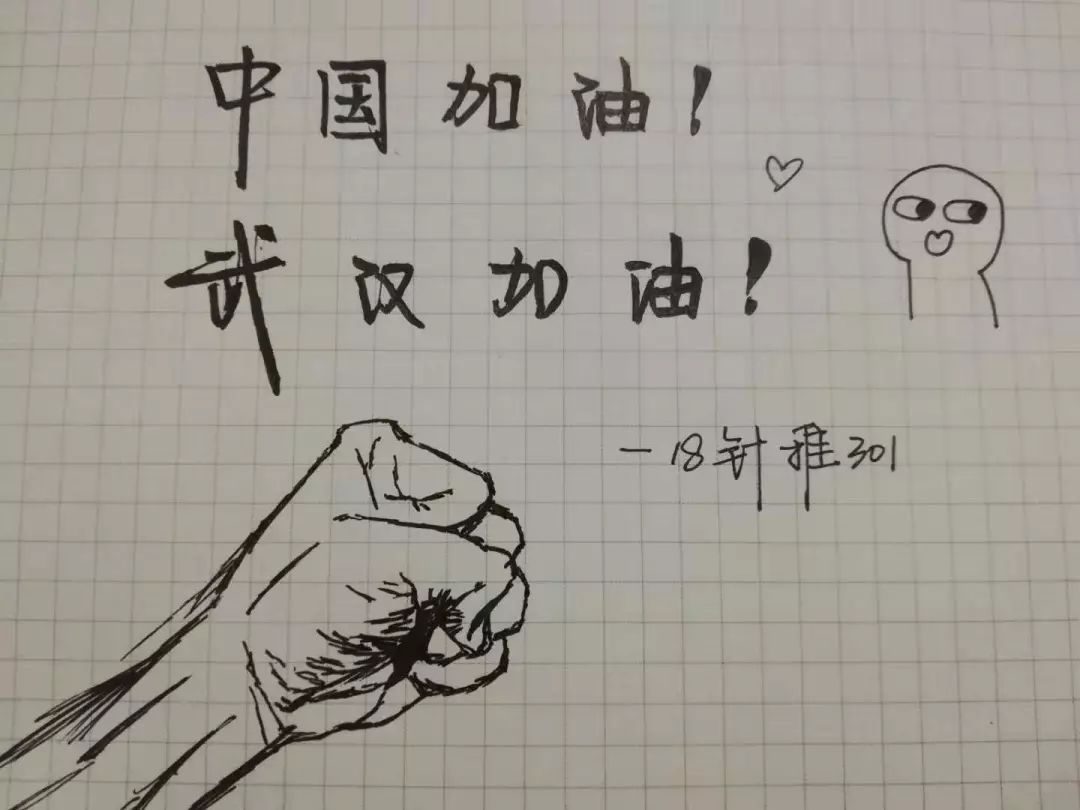 中国加油！
武汉加油！
一18针推301